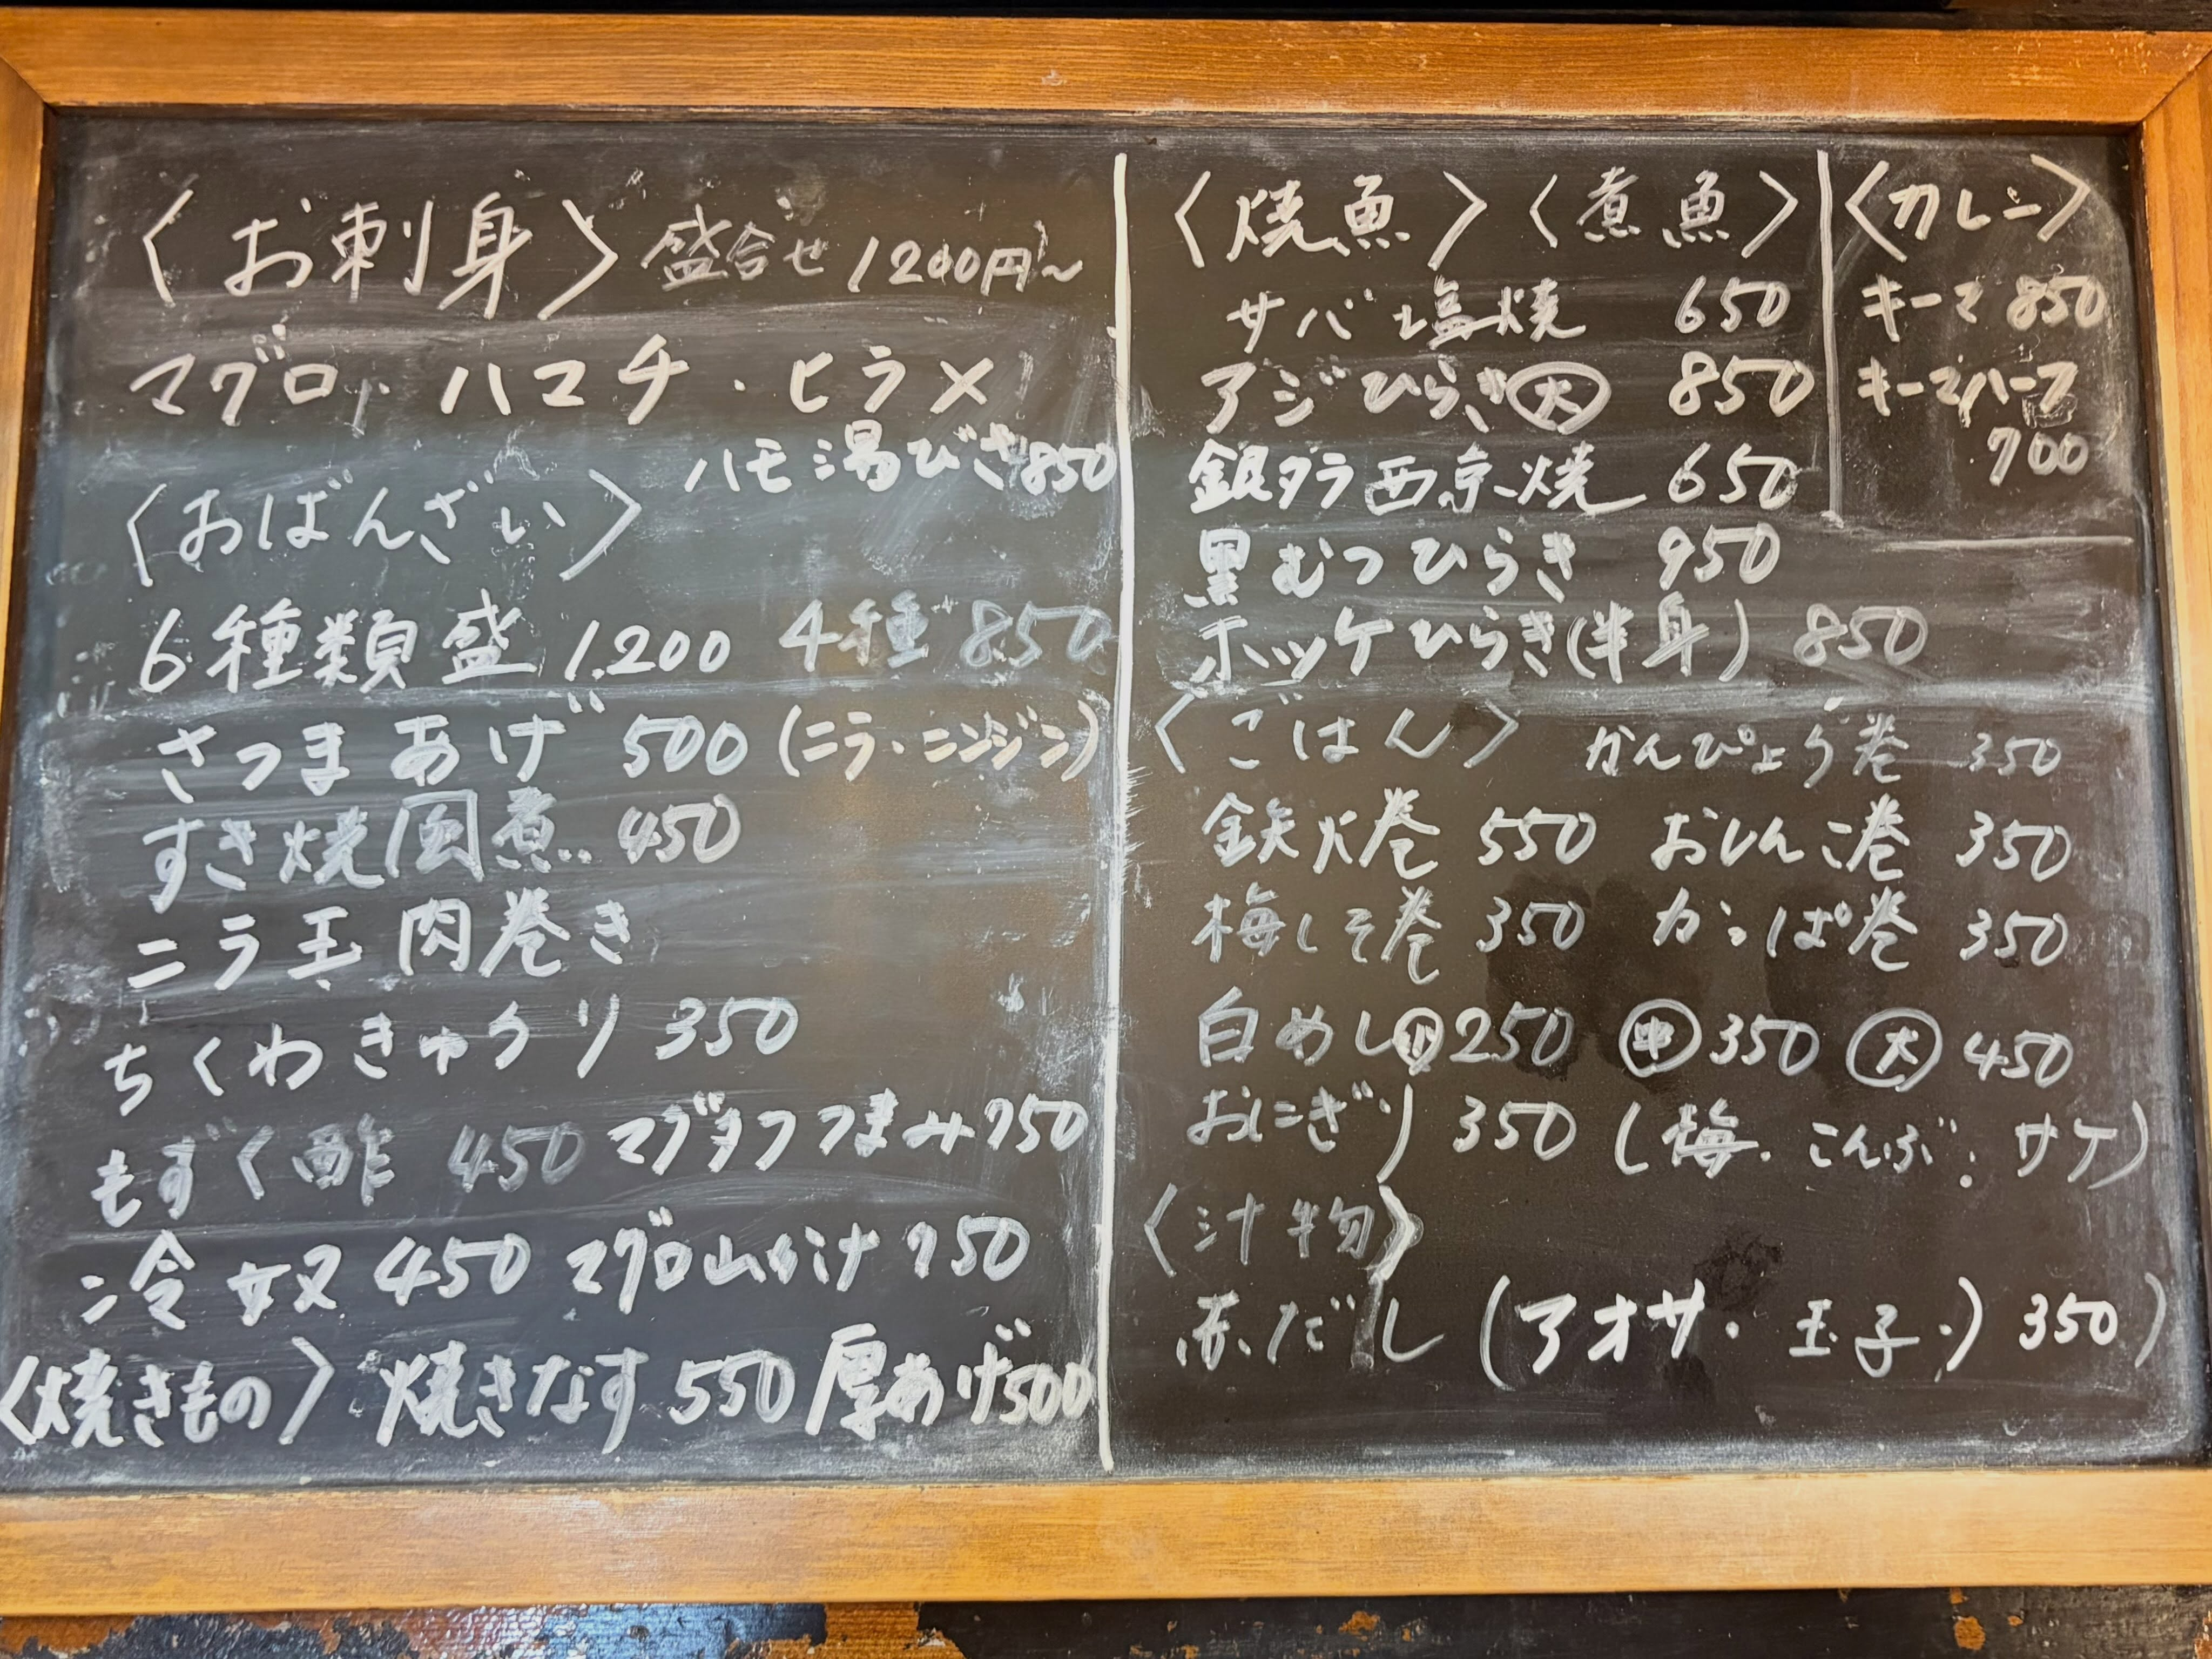 〈お刺身〉盛合せ 1200円〜
マグロ・ハマチ・ヒラメ
ハモ湯びき850
〈おばんざい〉
6種類盛 1,200 4種 850
さつまあげ 500 (ニラ・ニンジン)
すき焼風煮 450
ニラ玉肉巻き
ちくわきゅうり 350
もずく酢 450 マグタクつまみ750
冷奴 450 マグロ山かけ 750
〈焼きもの〉焼きなす 550 厚あげ500
〈焼魚〉〈煮魚〉
サバ塩焼 650
アジひらき㊅ 850
銀ダラ西京焼 650
黒むつひらき 950
ホッケひらき(半身) 850
〈カレー〉
キーマ 850
キーマハーフ
700
〈ごはん〉 かんぴょう巻 350
鉄火巻 550 おしんこ巻 350
梅しそ巻 350 かっぱ巻 350
白めし小250 中350 大450
おにぎり 350 (梅・こんぶ・サケ)
〈汁物〉
赤だし (アオサ・玉子・) 350)